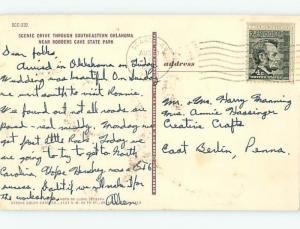 SCENIC DRIVE THROUGH SOUTHEASTERN OKLAHOMA
NEAR ROBBERS CAVE STATE PARK
Dear folks,
Arrived in Oklahoma on Friday.
Wedding was beautiful. On Sunday
we went south to visit Ronnie.
We found out not all roads are
paved - real muddy. Monday we
get past Little Rock. Today we
are going to try to get to North
Carolina. Hope Hershey was a
success. Doubt if we'll make it for
the workshop.
address
Mr. & Mrs. Harry Manning
Mrs. Annie Hassinger
Creative Crafts
East Berlin, Penna.